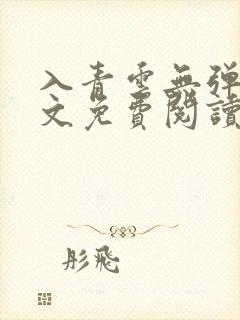 入青雲無弹
文免費閱讀
彤飛